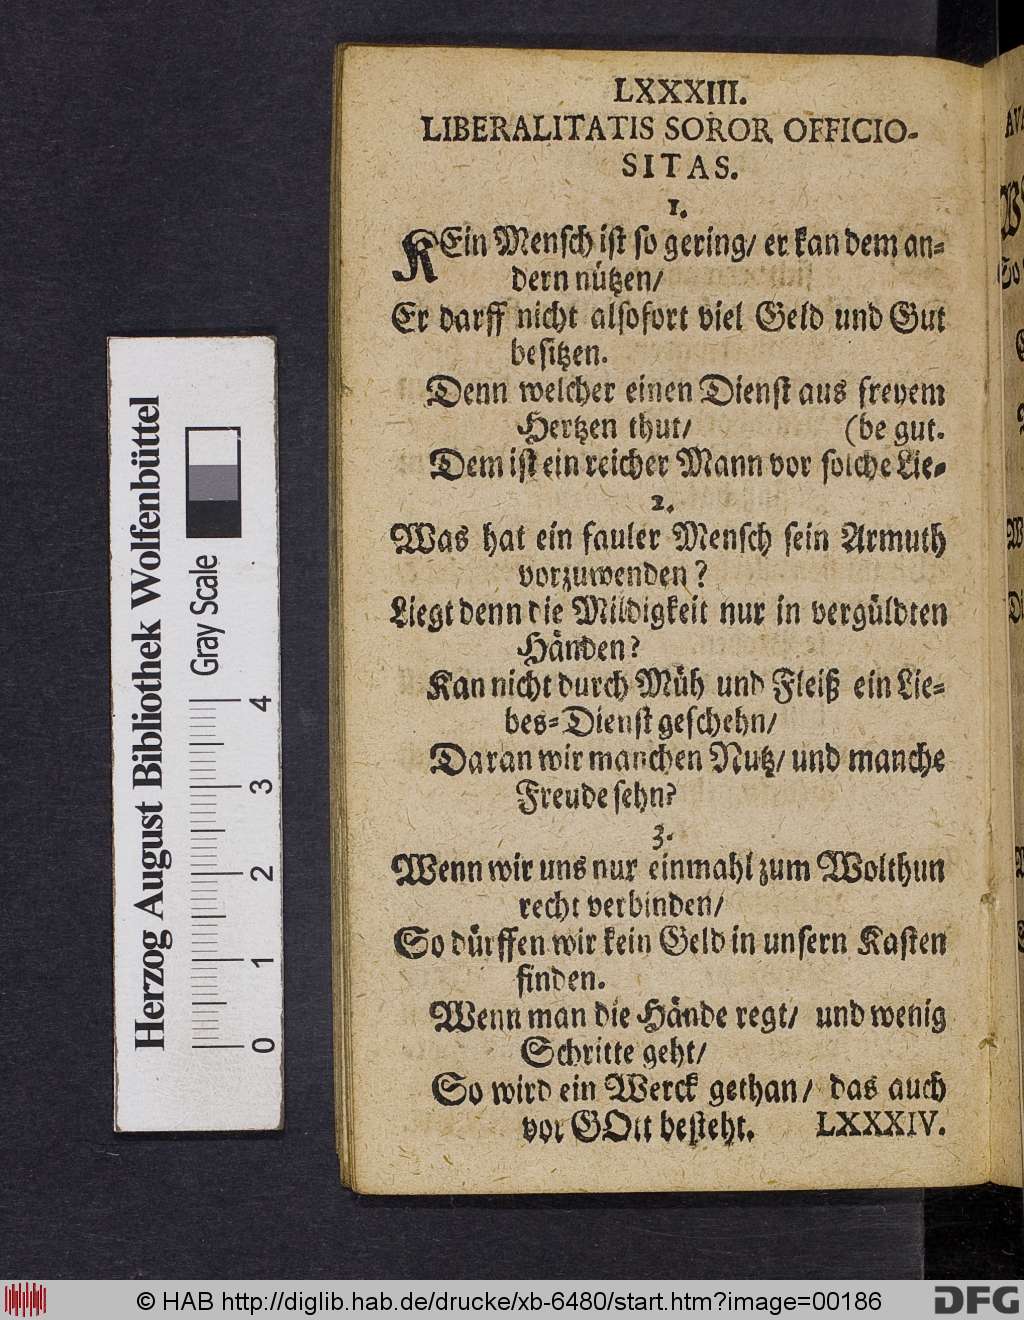 LXXXIII.
LIBERALITATIS SOROR OFFICIO-
SITAS.
1.
KEin Mensch ist so gering/ er kan dem an-
dern nützen/
Er darff nicht alsofort viel Geld und Gut
besitzen.
Denn welcher einen Dienst aus freyem
Hertzen thut/ (be gut.
Dem ist ein reicher Mann vor solche Lie-
2.
Was hat ein fauler Mensch sein Armuth
vorzuwenden?
Liegt denn die Mildigkeit nur in vergüldten
Händen?
Kan nicht durch Müh und Fleiß ein Lie-
bes-Dienst geschehn/
Daran wir manchen Nutz/ und manche
Freude sehn?
3.
Wenn wir uns nur einmahl zum Wolthun
recht verbinden/
So dürffen wir kein Geld in unsern Kasten
finden.
Wenn man die Hände regt/ und wenig
Schritte geht/
So wird ein Werck gethan/ das auch
vor GOtt besteht. LXXXIV.
Herzog August Bibliothek Wolfenbüttel
Gray Scale
0 1 2 3 4
© HAB http://diglib.hab.de/drucke/xb-6480/start.htm?image=00186
DFG